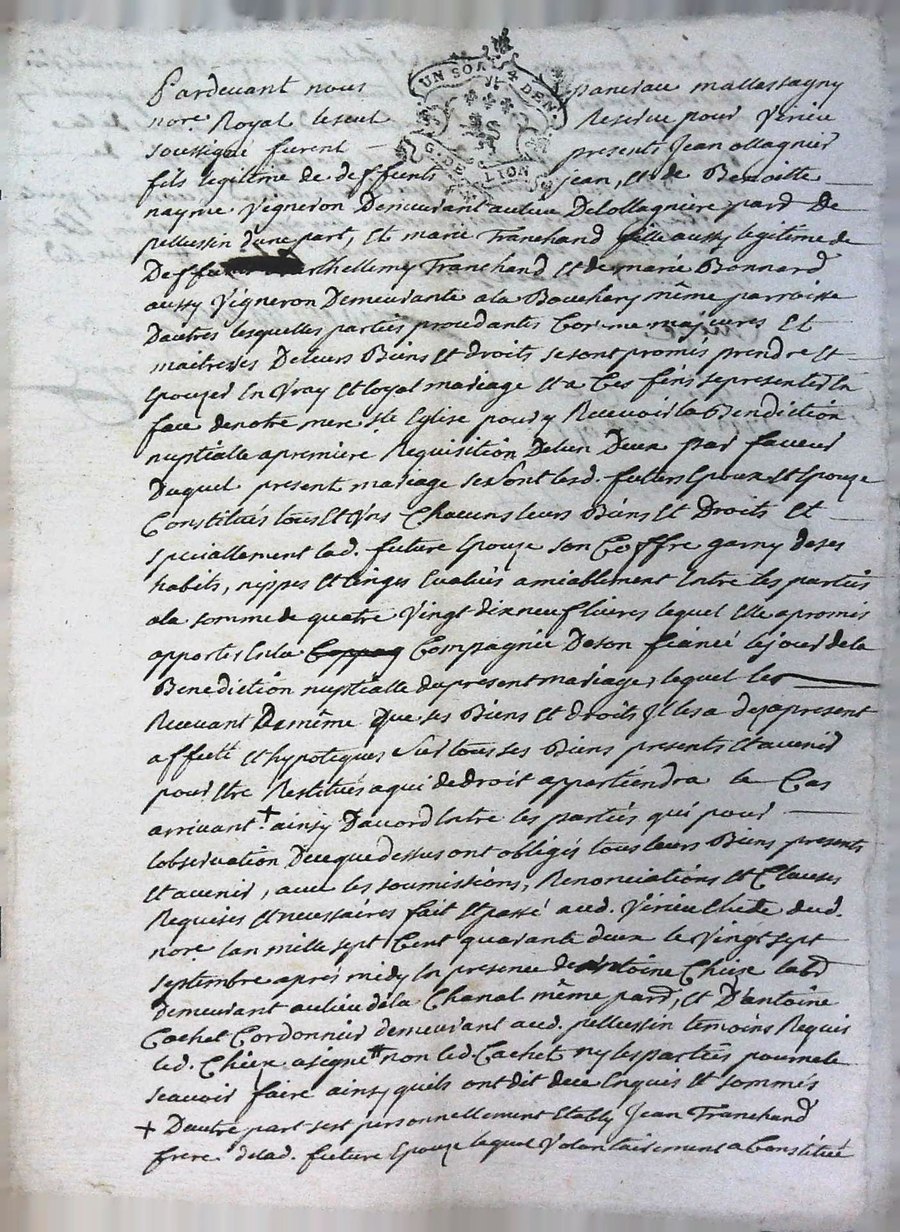 UN SOL 4 DEN.
G. DE LION
Pardevant nous pancrace mallassagny
nore. Royal le seul Reservé pour Verieu
soussigné furent present Jean ollagnier
fils legitime de deffunts jean, et de Benoitte
nayme Vigneron Demeurant au lieu De lollagniere parr. De
pellussin dune part, et marie Tranchand fille aussy legitime de
Deffunt Barthellemy Tranchand et de marie Bonnard
aussy Vigneron Demeurante a la Bouchery même parroisse
Dautres lesquelles parties procedantes Comme majeures et
maitresses De leurs Biens et droits se sont promis prendre et
Epouzer En Vray et loyal mariage et a Ces fins se presenter En
face de notre mere Ste Eglise pour y Recevoir la Bendiction
nuptialle a premiere Requisition De lun Deux par faveur
Duquel present mariage se sont lesd. futurs Epoux et Epouze
Constitués tous et Uns Chacuns leurs Biens et Droits et
speciallement lad. future Epouze son Coffre garny de ses
habits, nippes et linges Evalués amiablement Entre les parties
a la somme de quatre Vingt dix neuf livres lequel Elle a promis
apporter En la Compagnie De son fiancé le jour de la
Benediction nuptialle du present mariage, lequel les
Recevant De même que ses Biens et droits Il les a des a present
affecté et hypoteques sur tous ses Biens presents et avenir
pour Etre Restitués a qui de droit appartiendra le Cas
arrivant + ainsy Daccord Entre les parties qui pour
lobservation De ce que dessus ont obligés tous leurs Biens presents
et avenir, avec les soumissions, Renonciations et Clauses
Requises et necessaires fait et passé aud. Verieu Etude dud.
nore. lan mille sept Cent quarante deux le Vingt sept
septembre aprés midy En presence de antoine Chieze
Demeurant au lieu de la Chanal même parr., et D'antoine
Cachet Cordonnier demeurant aud. pellussin temoins Requis
led. Chieze a signé non led. Cachet ny les parties pour ne le
scavoir faire ainsy quils ont dit de ce Enquis et sommés
+ Dautre part sest personnellement Etably Jean Tranchand
frere de lad. future Epouze lequel Volontairement a Constitué